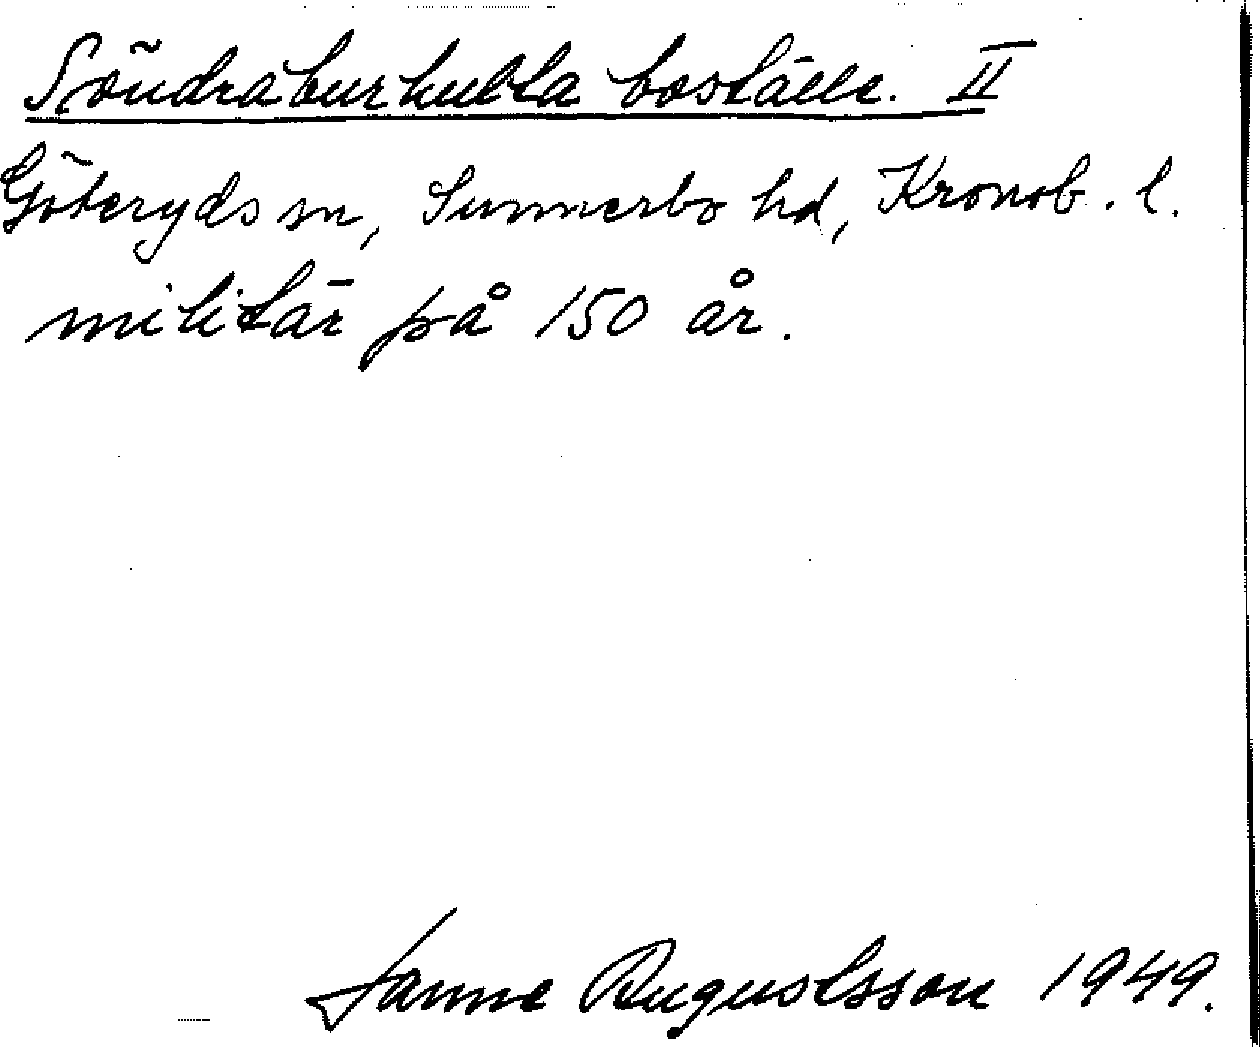 Söndraburhulta boställe. II
Göteryds sn, Sunnerbo hd, Kronob. l.
militär på 150 år.
Janne Augustsson 1949.